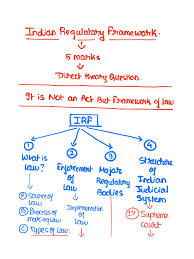 Indian Regulatory Framework.
5 marks
Direct theory Question.
It is Not an Act But Framework of law
IRF
1 2 3 4
What is law?
Enforcement of Law
Major Regulatory Bodies
Structure of Indian Judicial System
A Source of Law
B Process of Making Law
C Types of Law
Implementation of Law
Supreme Court